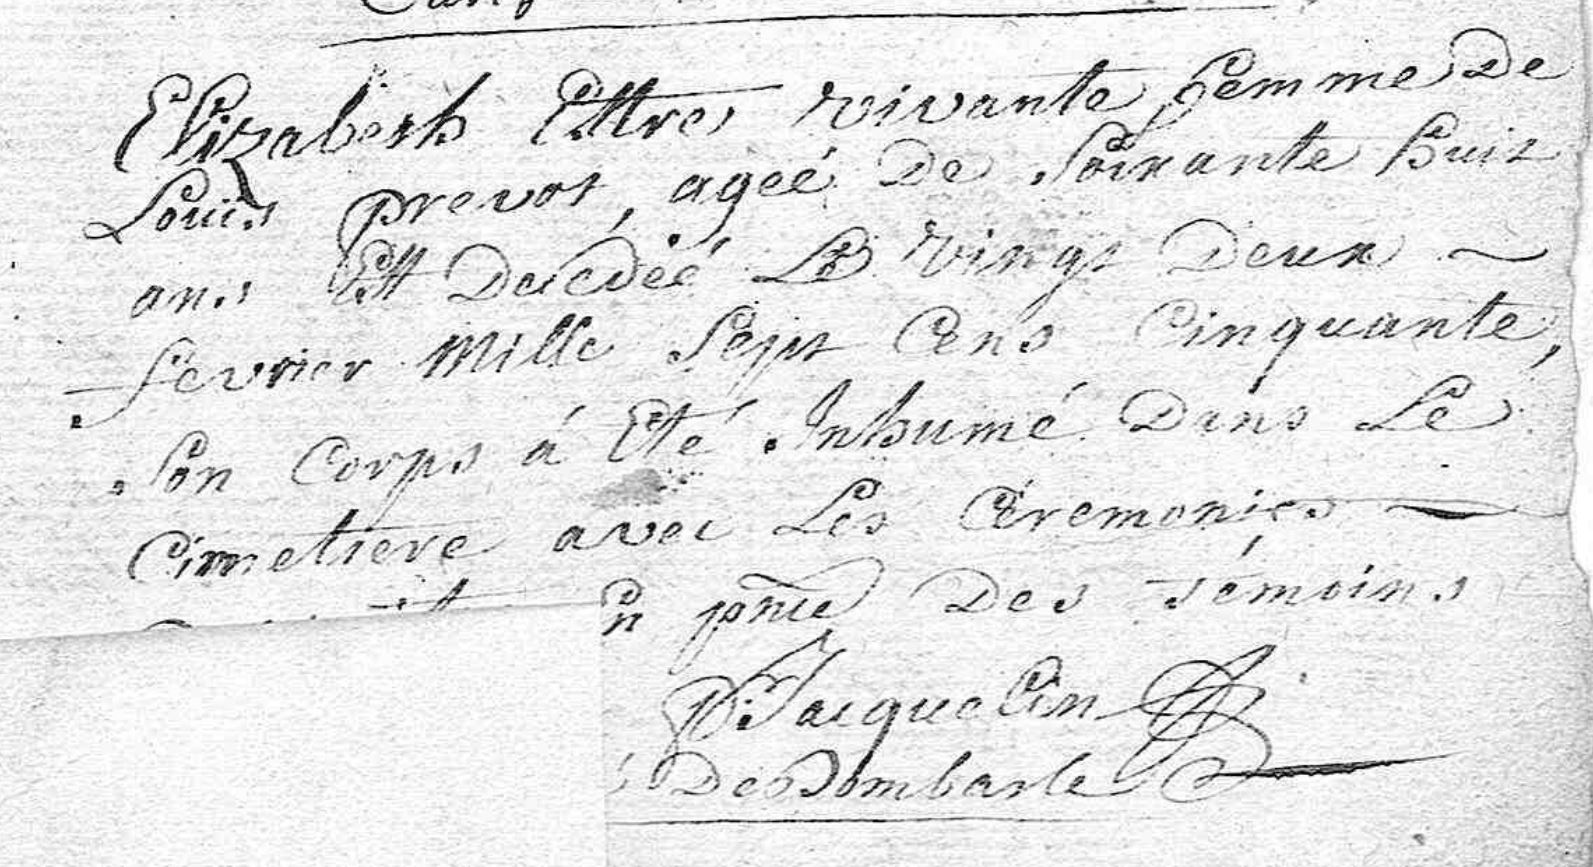 Elizabeth Ettre vivante femme De
Louis prevot, ageé De Soixante huit
ans Est Decedeé Le vingt Deux ~
fevrier Mille Sept Cens Cinquante,
Son Corps á Eté Inhumé Dans Le
Cimetiere avec Les Céremonies
pnce Des témoins
P. Jacquelin
De Dombasle